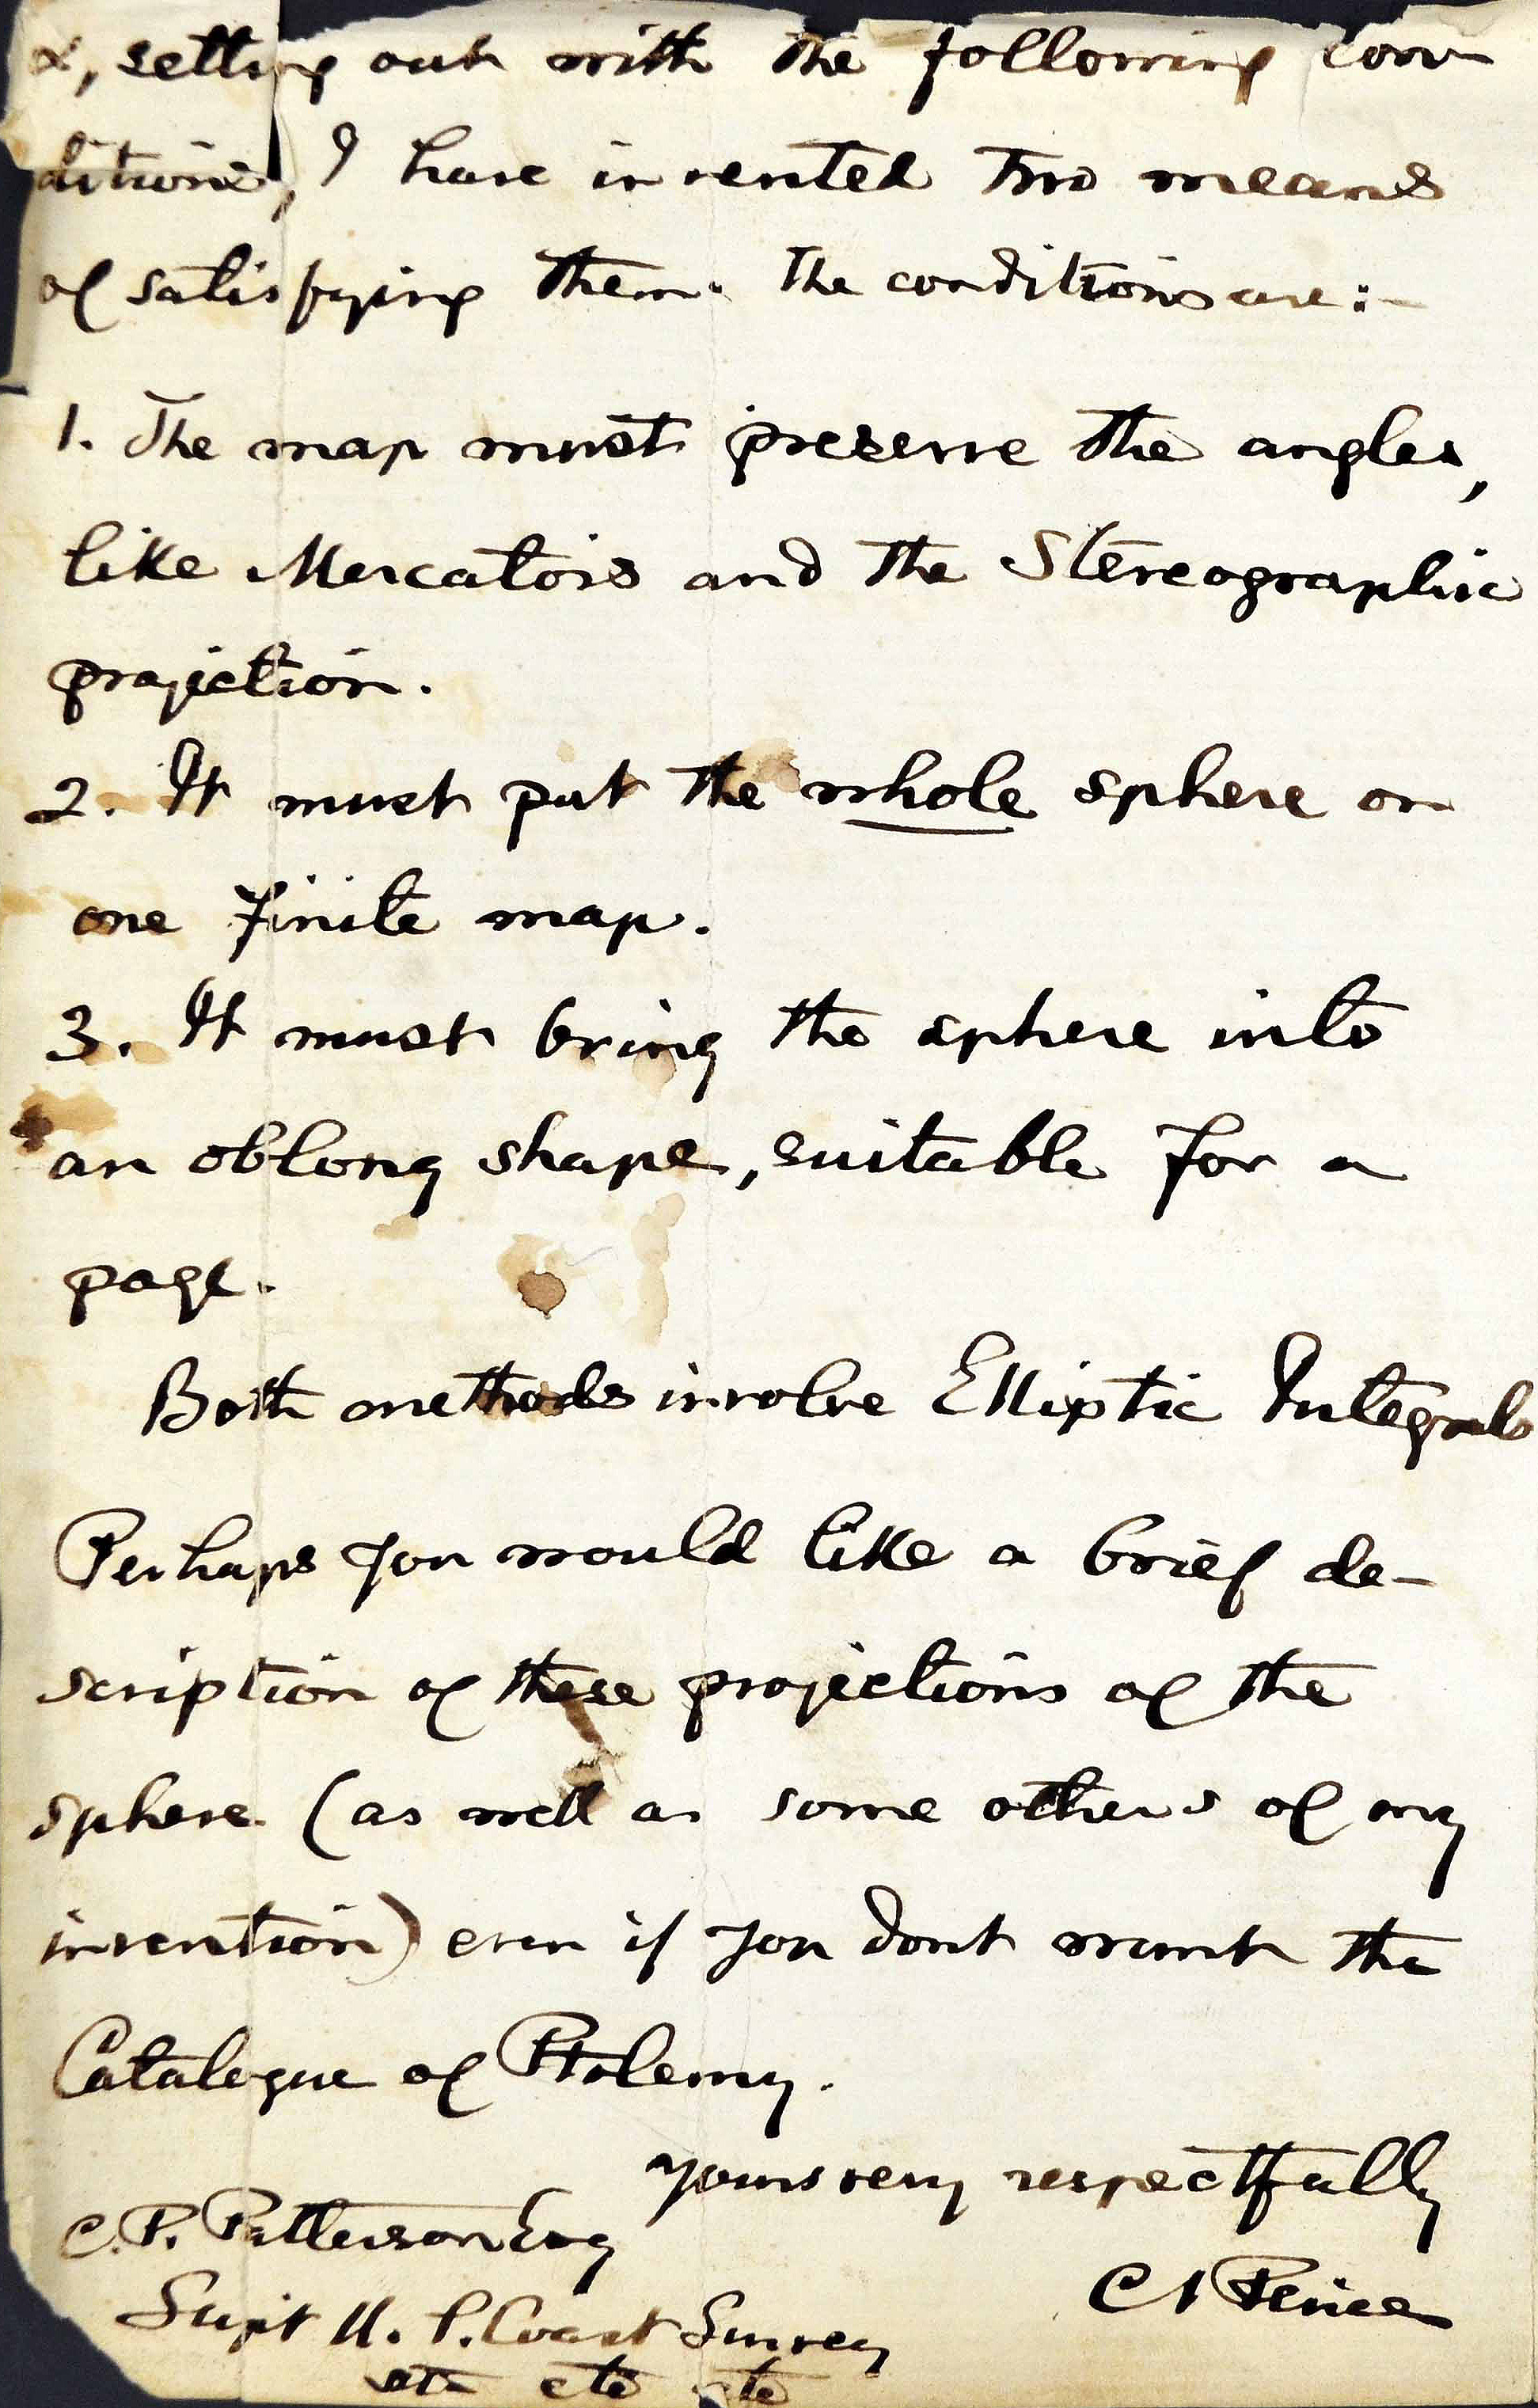 &, setting out with the following con-
ditions, I have invented two means
of satisfying them. The conditions are:-
1. The map must preserve the angles,
like Mercators and the Stereographic
projection.
2. It must put the whole sphere on
one finite map.
3. It must bring the sphere into
an oblong shape, suitable for a
page.
Both methods involve Elliptic Integrals
Perhaps you would like a brief de-
scription of these projections of the
sphere (as well as some others of my
invention) even if you dont want the
Catalogue of Ptolemy.
Yours very respectfully
C. P. Patterson Esq
C S Peirce
Supt U. S. Coast Survey
etc etc etc